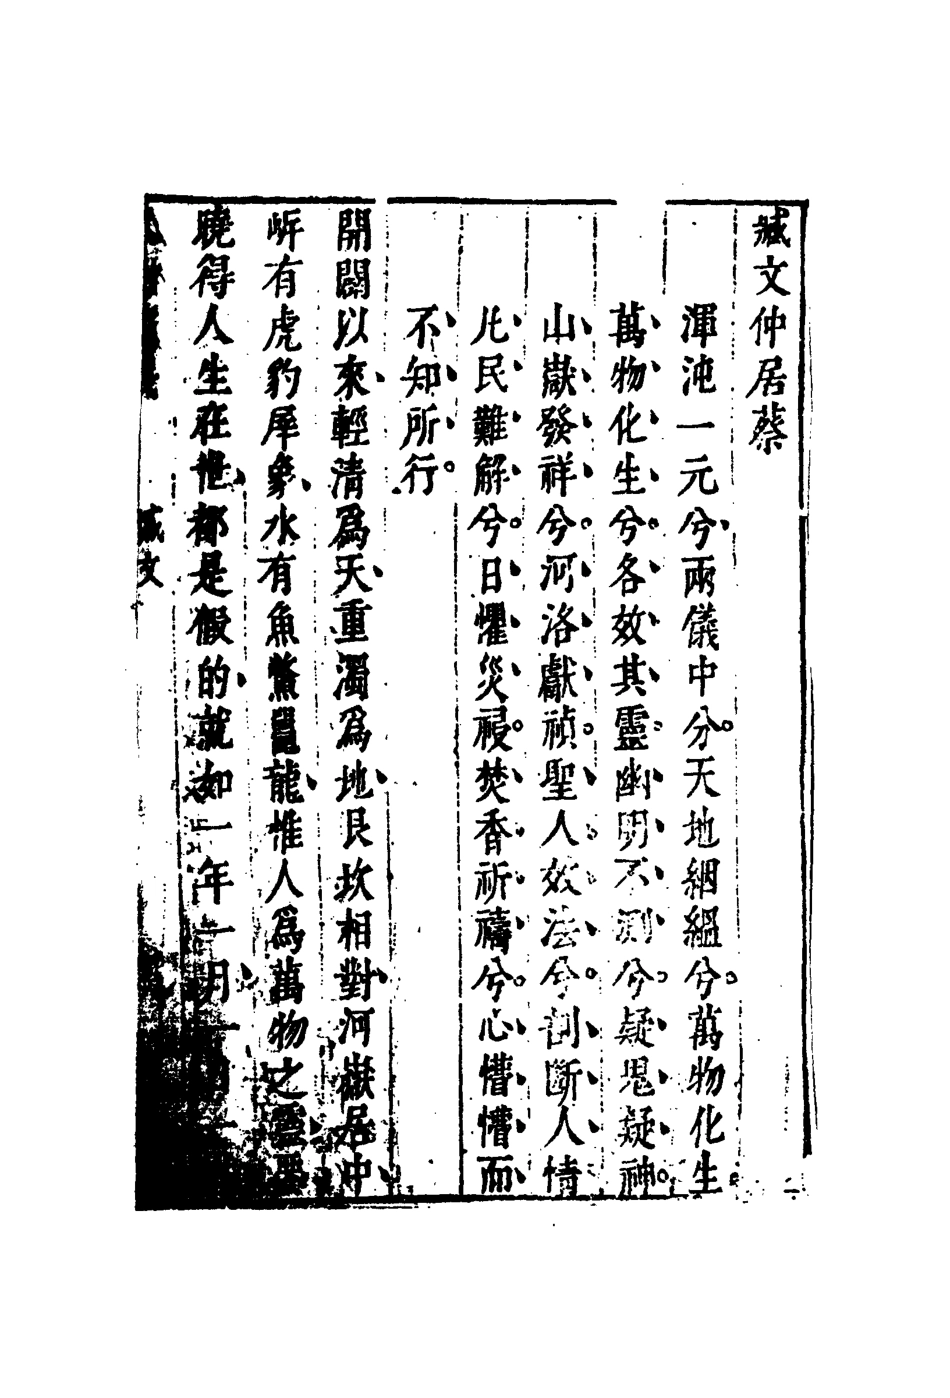 臧文仲居蔡
渾沌一元兮兩儀中分天地絪縕兮萬物化生
萬物化生兮各效其靈幽明不測兮疑鬼疑神
山嶽發祥兮河洛獻禎聖人效法兮剖斷人情
此民難解兮日懼災祲焚香祈禱兮心懵懵而
不知所行
開闢以來輕清爲天重濁爲地艮坎相對河嶽居中
岍有虎豹犀象水有魚鱉黿龍惟人爲萬物之靈
曉得人生在世都是假的就如一年一月一
臧文